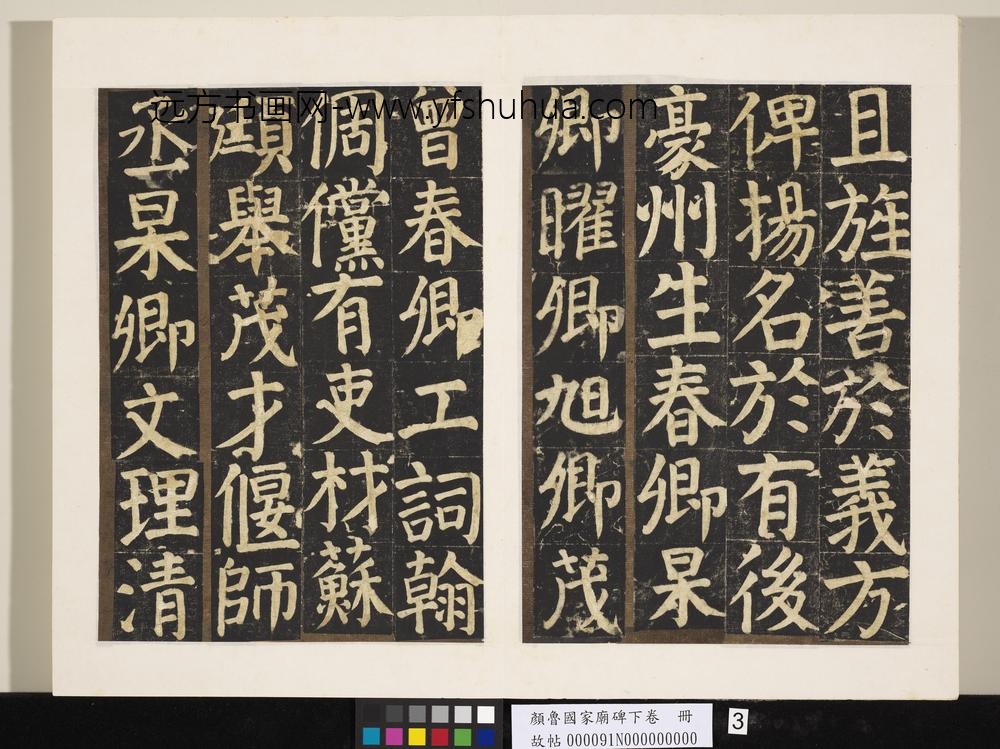 远方书画网-www.yfshuhua.com
且旌善於義方
俾揚名於有後
豪州生春卿杲
卿曜卿旭卿茂
曾春卿工詞翰
倜儻有吏材蘇
頲舉茂才偃師
丞杲卿文理清
顏魯國家廟碑下卷 冊
故帖 000091N000000000
3